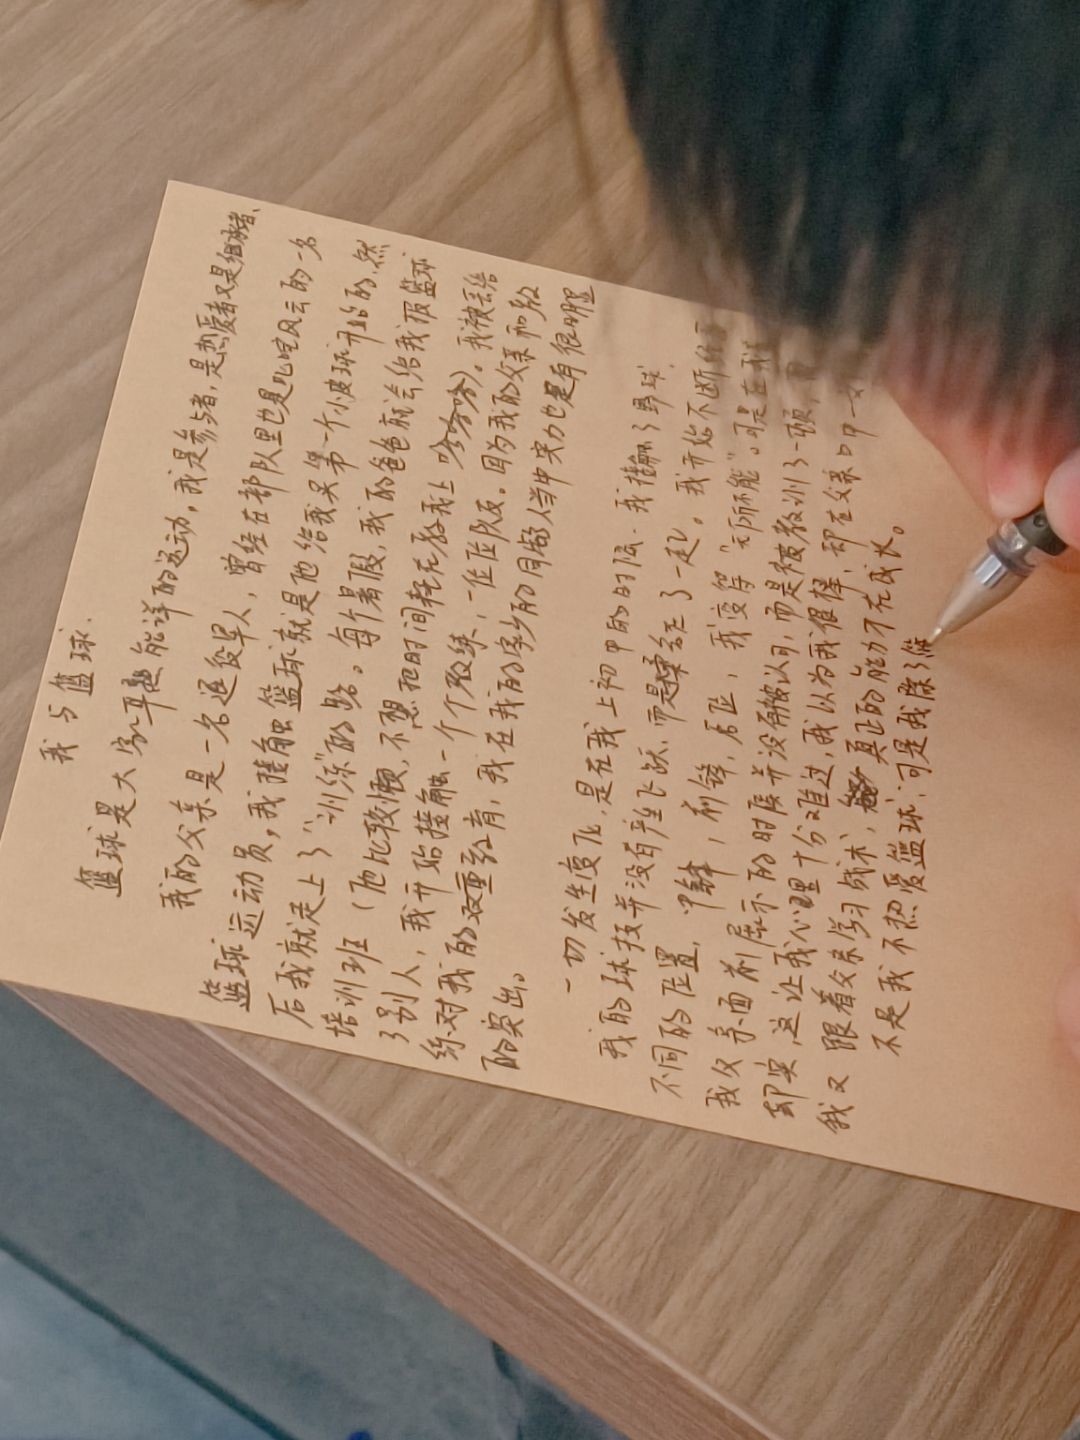 我与篮球.
篮球是大家耳熟能详的运动，我是参与者，是热爱者又是组织者、
我的父亲是一名退役军人，曾经在部队里也是叱咤风云的一名
篮球运动员，我接触篮球就是他给我买第一个小皮球开始的，然
后我就走上了“训练”的路。每个暑假，我的爸爸就会给我报篮球
培训班（他比较懒，不想把时间耗无教我上哈哈哈）。我被丢给
了别人，我开始接触一个个教练，一位位队友。因为我的父亲和教
练对我的双重教育，我在我的家乡的同龄人当中实力也是有很明显
的突出。
一切发生变化，是在我上初中的的时候，我接触了野球.
我的球技并没有产生飞跃，而是杂在了一起。我开始不断
不同的位置，中锋，前锋，后卫，我变得“无所不能”。可是在我
我父亲面前展示的时候并没有被认可，而是被教训了一顿，
却实，这让我心里十分难过，我以为我很棒，却在父亲口中一
我又跟着父亲学习战术，真正的能力才无成长。
不是我不热爱篮球，可是我除了